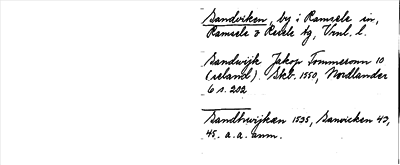 Sandviken, by i Ramsele sn,
Ramsele & Resele tg, Vnl. l.
Sandwijk Jakop Tommesonn 10
(seland). Skb. 1550, Nordlander
6 s. 202
Sandhwijkæn 1535, Sanvicken 43,
45. a.a. anm.